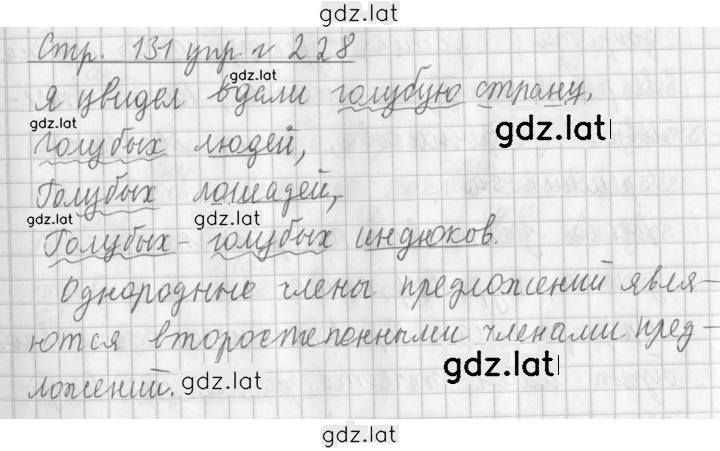 gdz.lat
Стр. 131 упр. № 228
gdz.lat
Я увидел вдали голубую страну,
gdz.lat
gdz.lat
Голубых людей,
Голубых лошадей,
gdz.lat
gdz.lat
Голубых-голубых индюков.
Однородные члены предложений явля-
ются второстепенными членами пред-
gdz.lat
ложений.
gdz.lat
gdz.lat